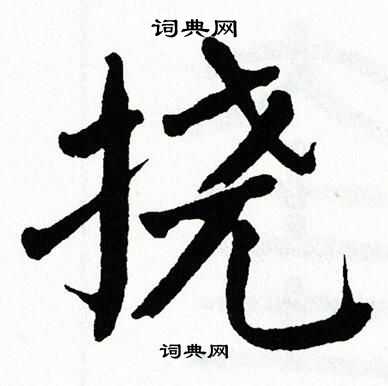 词典网
挠
词典网